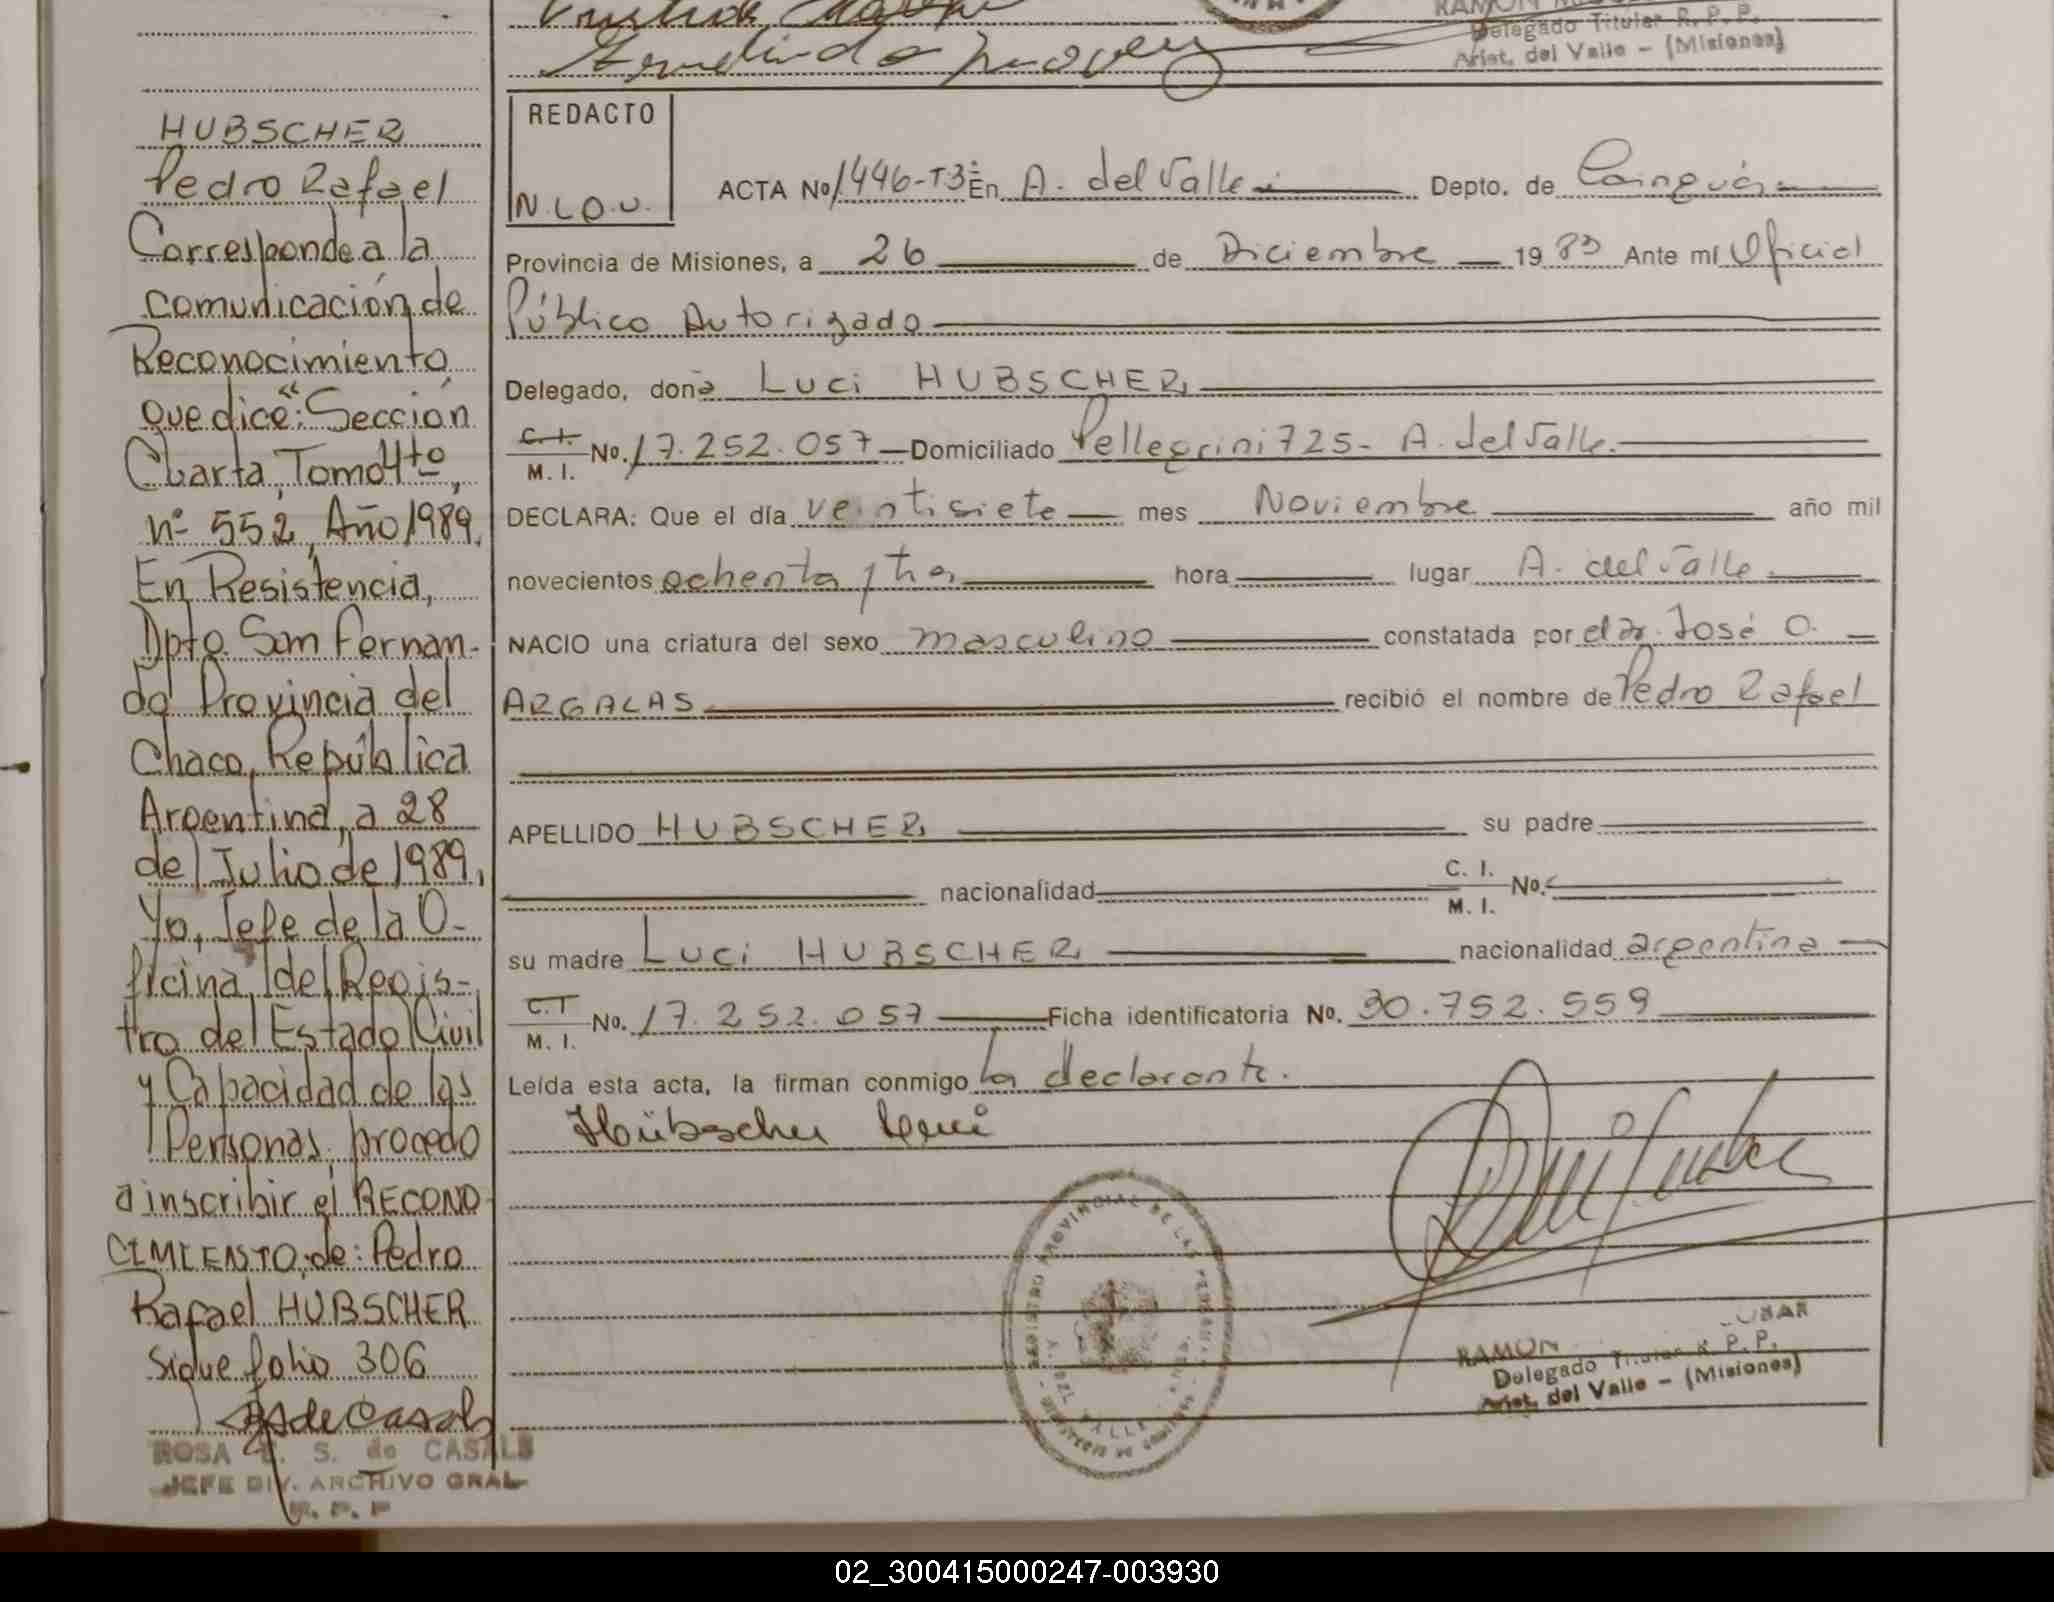 RAMON
Delegado Titular R. P. P.
Arist. del Valle - (Misiones)
HUBSCHER
Pedro Rafael
Corresponde a la
comunicación de
Reconocimiento
que dice: "Sección
Cuarta, Tomo 4to,
nº 552, Año 1989,
En Resistencia,
Dpto. San Fernan-
do Provincia del
Chaco, República
Argentina, a 28
de Julio de 1989,
Yo, Jefe de la O-
ficina del Regis-
tro del Estado Civil
y Capacidad de las
Personas, procedo
a inscribir el RECONO
CIMIENTO, de: Pedro
Rafael HUBSCHER
Sigue folio 306
ROSA E. S. de CASALS
JEFE DIV. ARCHIVO GRAL
R. P. P
REDACTO
ACTA No 1446-T3º En A. del Valle Depto. de Cainguás
Provincia de Misiones, a 26 de Diciembre 1983 Ante mí Oficial
Público Autorizado
Delegado, doña Luci HUBSCHER
C. I.
M. I. No. 17.252.057 Domiciliado Pellegrini 725 - A. del Valle.
DECLARA: Que el día veintisiete mes Noviembre año mil
novecientos ochenta y tres hora lugar A. del Valle
NACIO una criatura del sexo masculino constatada por el Dr. José O.
ARGALAS recibió el nombre de Pedro Rafael
APELLIDO HUBSCHER su padre
nacionalidad C. I. M. I. No.
su madre Luci HUBSCHER nacionalidad argentina
C. I.
M. I. No. 17.252.057 Ficha identificatoria No. 30.752.559
Leída esta acta, la firman conmigo la declarante.
Hübscher Luci
REGISTRO PROVINCIAL DE LAS PERSONAS
A. DEL VALLE
RAMON
Delegado Titular R. P. P.
Arist. del Valle - (Misiones)
02_300415000247-003930